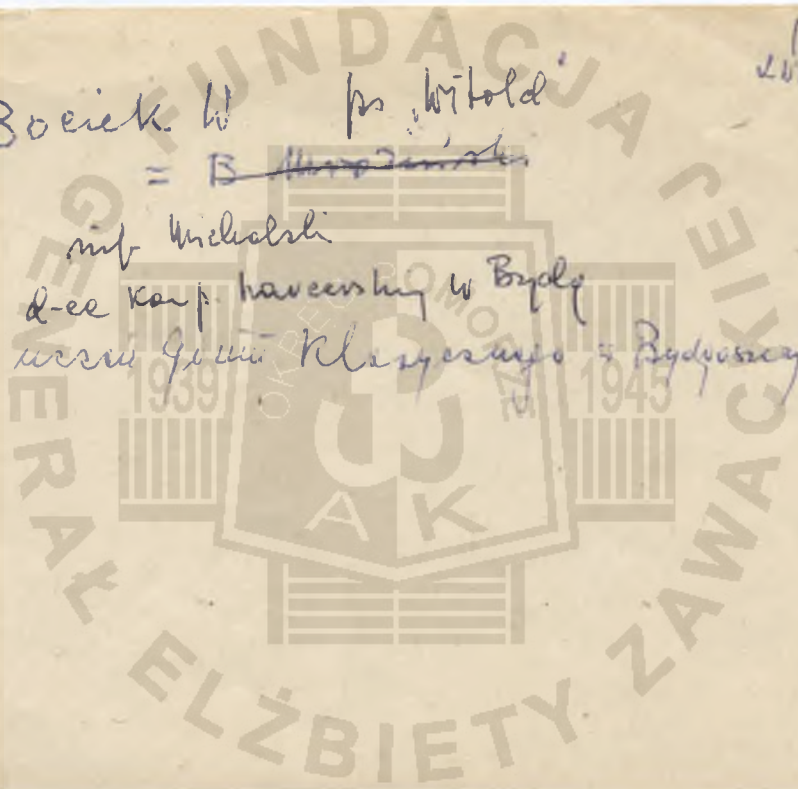 Bociek W ps „Witold”
= B
inf. Michalski
d-ca komp. harcerskiej w Bydg
uczeń Gimn Klasycznego w Bydgoszczy
FUNDACJA GENERAŁ ELŻBIETY ZAWACKIEJ
OKRĘG POMORZE
1939 1945
AK